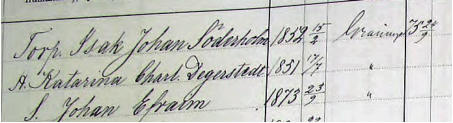 Torp. Isak Johan Söderholm 1852 15/2 75 24/9
H. Katarina Charl. Degerstedt 1851 17/7 "
S. Johan Efraim 1873 23/9 "